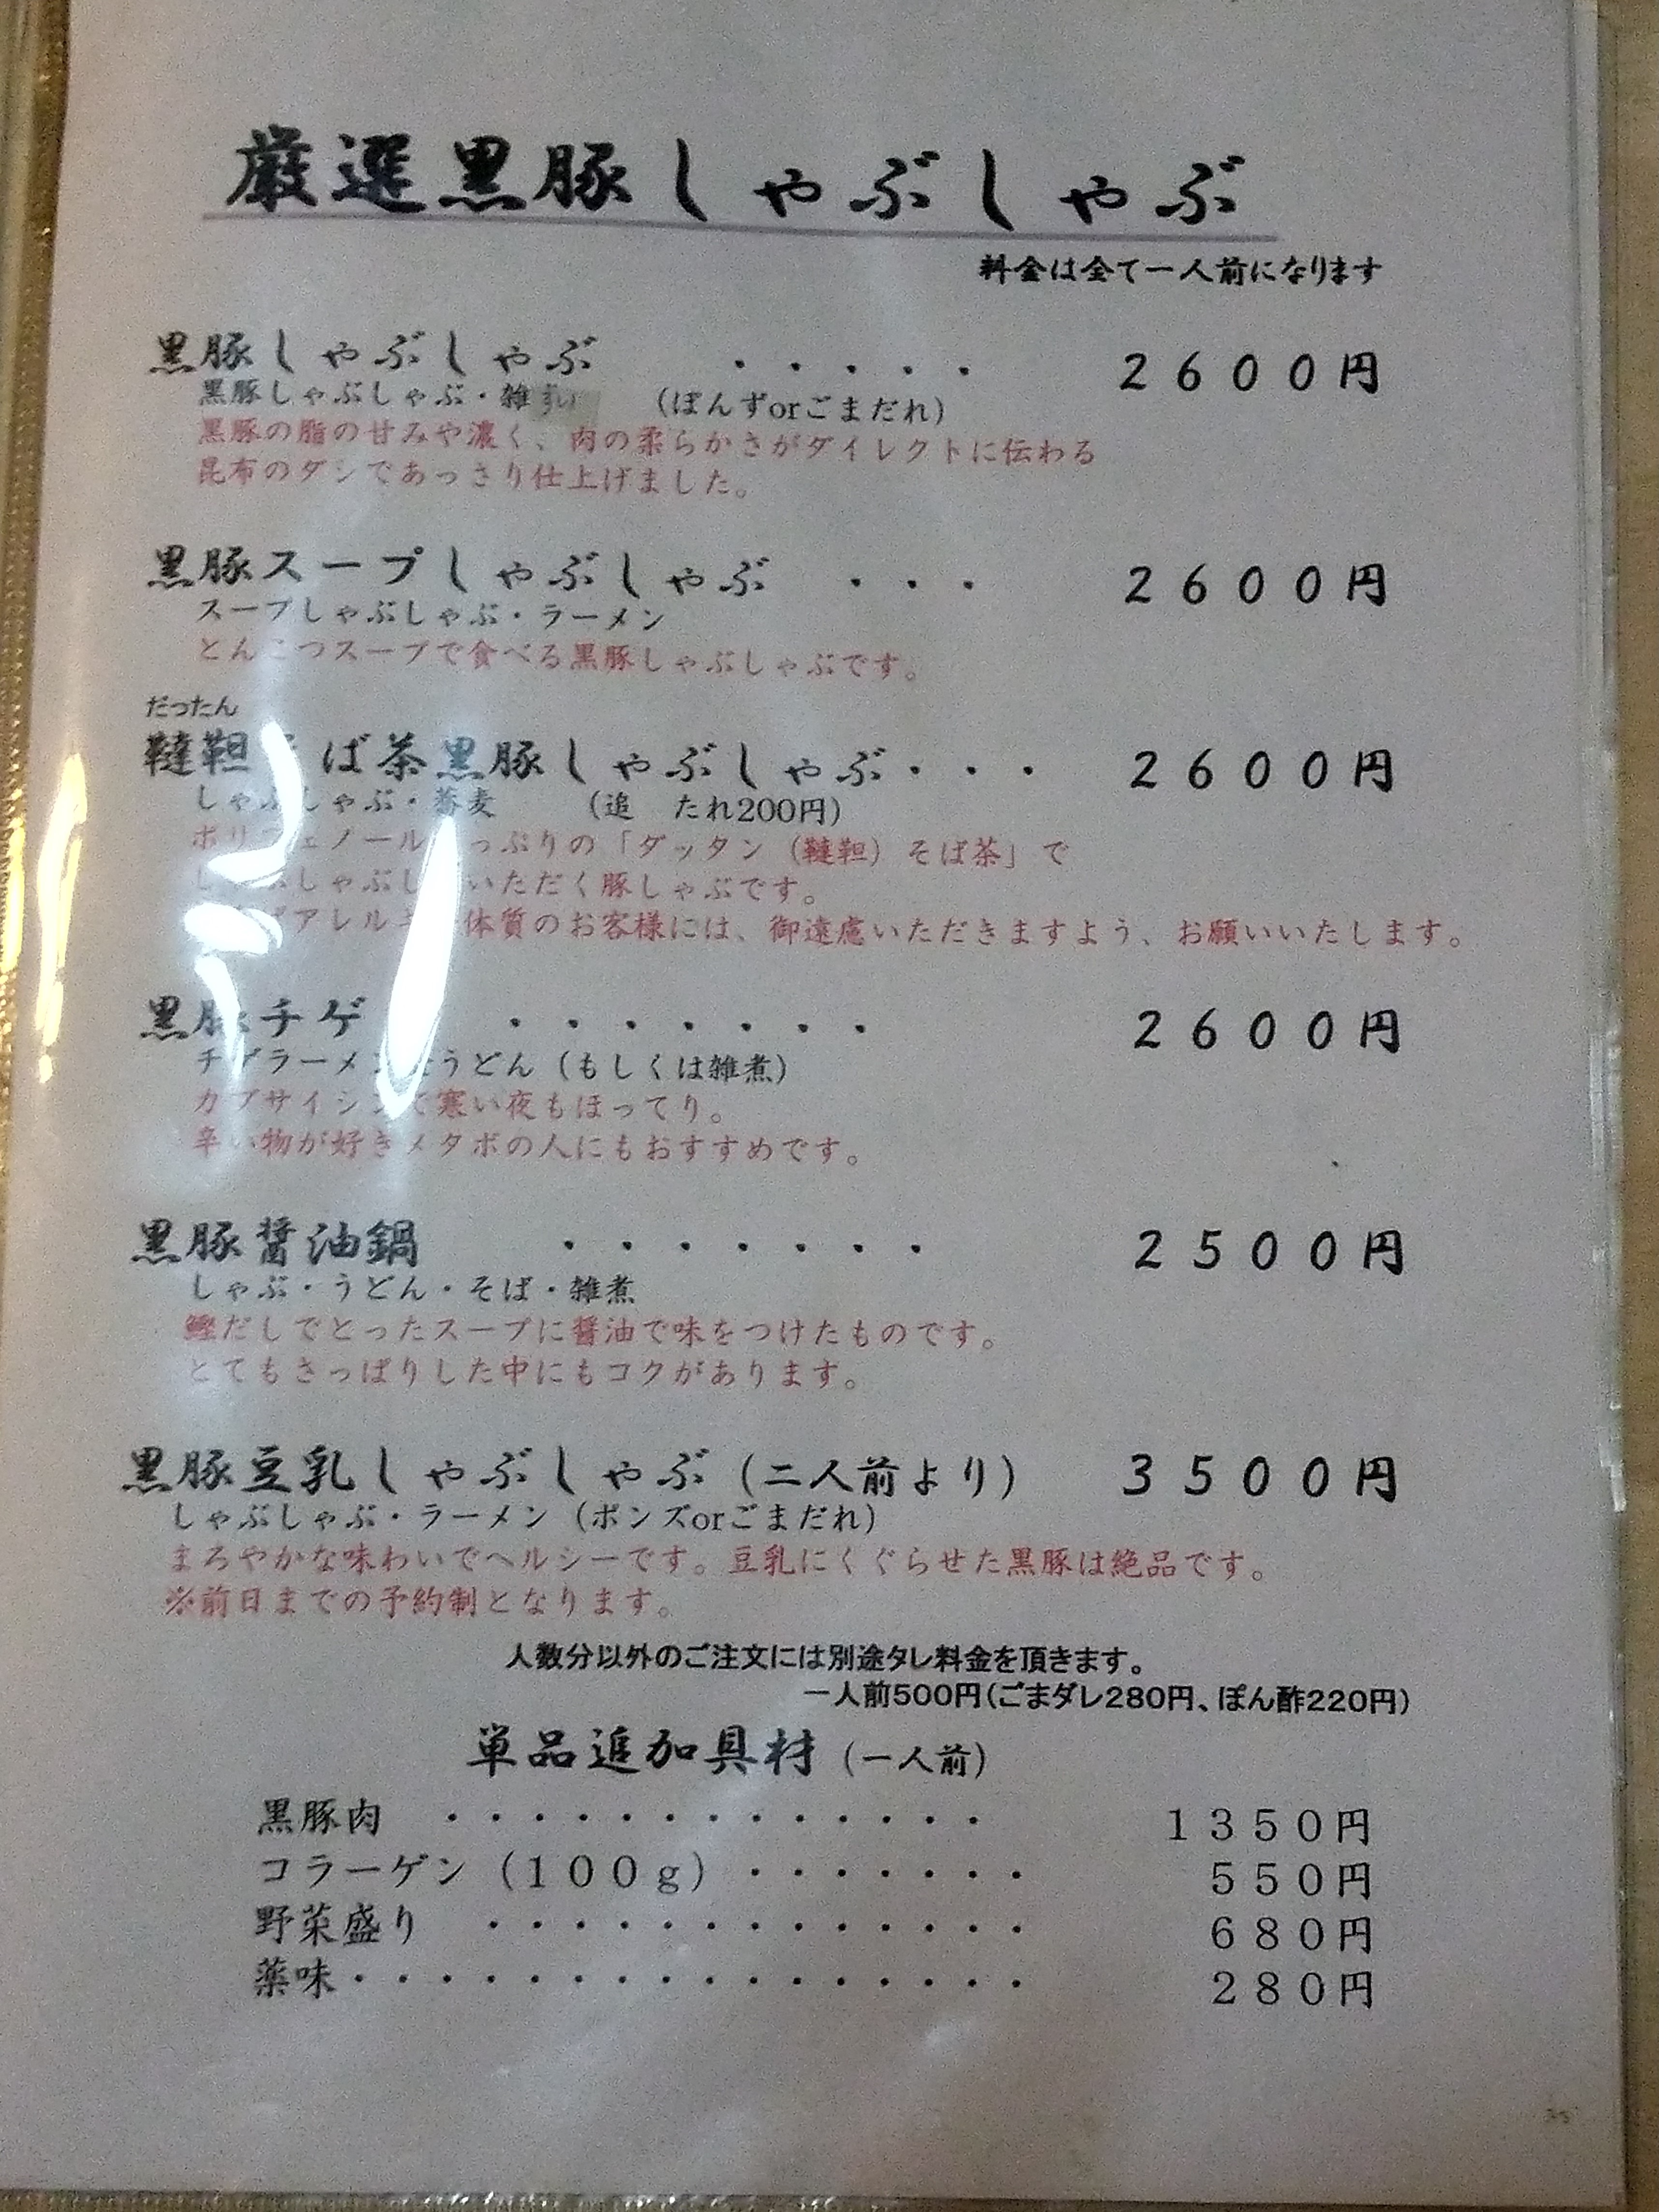 厳選黒豚しゃぶしゃぶ
料金は全て一人前になります
黒豚しゃぶしゃぶ ・・・・・ 2600円
黒豚しゃぶしゃぶ・雑 (ぽんずorごまだれ)
黒豚の脂の甘みや濃く、肉の柔らかさがダイレクトに伝わる
昆布のダシであっさり仕上げました。
黒豚スープしゃぶしゃぶ ・・・ 2600円
スープしゃぶしゃぶ・ラーメン
とんこつスープで食べる黒豚しゃぶしゃぶです。
だったん
韃靼そば茶黒豚しゃぶしゃぶ・・・ 2600円
しゃぶしゃぶ・蕎麦 (追 たれ200円)
ポリフェノール っぷりの「ダッタン(韃靼)そば茶」で
しゃぶしゃぶし いただく豚しゃぶです。
アレルギー体質のお客様には、御遠慮いただきますよう、お願いいたします。
黒豚チゲ ・・・・・・・ 2600円
チゲラーメン うどん(もしくは雑煮)
カプサイシンで寒い夜もほってり。
辛い物が好きメタボの人にもおすすめです。
黒豚醤油鍋 ・・・・・・・ 2500円
しゃぶ・うどん・そば・雑煮
鰹だしでとったスープに醤油で味をつけたものです。
とてもさっぱりした中にもコクがあります。
黒豚豆乳しゃぶしゃぶ(二人前より) 3500円
しゃぶしゃぶ・ラーメン(ポンズorごまだれ)
まろやかな味わいでヘルシーです。豆乳にくぐらせた黒豚は絶品です。
※前日までの予約制となります。
人数分以外のご注文には別途タレ料金を頂きます。
一人前500円(ごまダレ280円、ぽん酢220円)
単品追加具材(一人前)
黒豚肉 ・・・・・・・・・・・・・ 1350円
コラーゲン(100g)・・・・・・・ 550円
野菜盛り ・・・・・・・・・・・・・ 680円
薬味・・・・・・・・・・・・・・・・ 280円